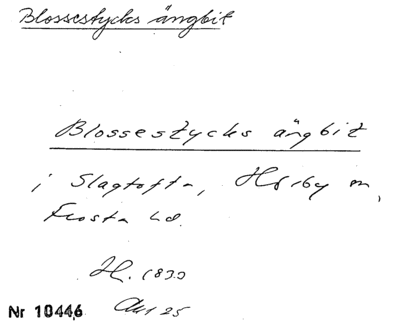 Blossestycks ängbit
Blossestycks ängbit
i Slagtofta, Hörby sn,
Frosta hd.
H. 1833
Akt 25
Nr 10446